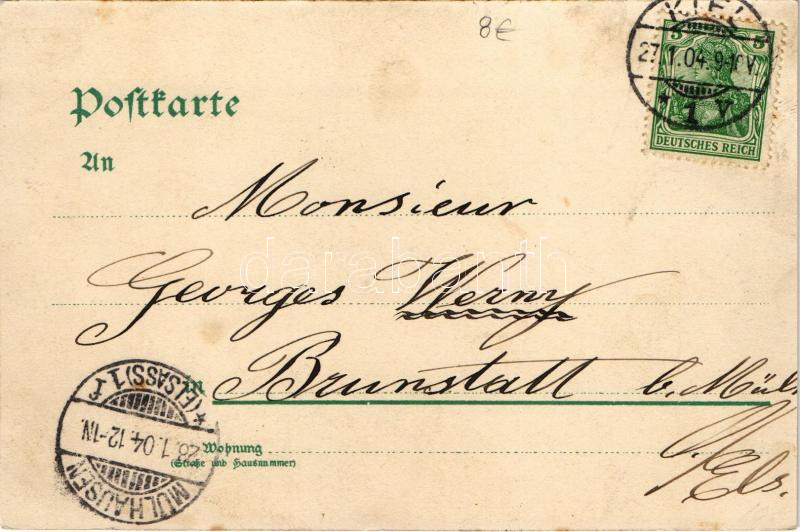 8€
KIEL
5 5
27.1.04.9-10V.
* 1 V.
DEUTSCHES REICH
Poſtkarte
An
Monsieur
darabanth
Georges Werny
in Brunstatt b. Mülh
i/Els.
Wohnung
(Straße und Hausnummer)
MÜLHAUSEN
28.1.04.12-1N.
*(ELSASS)1 f